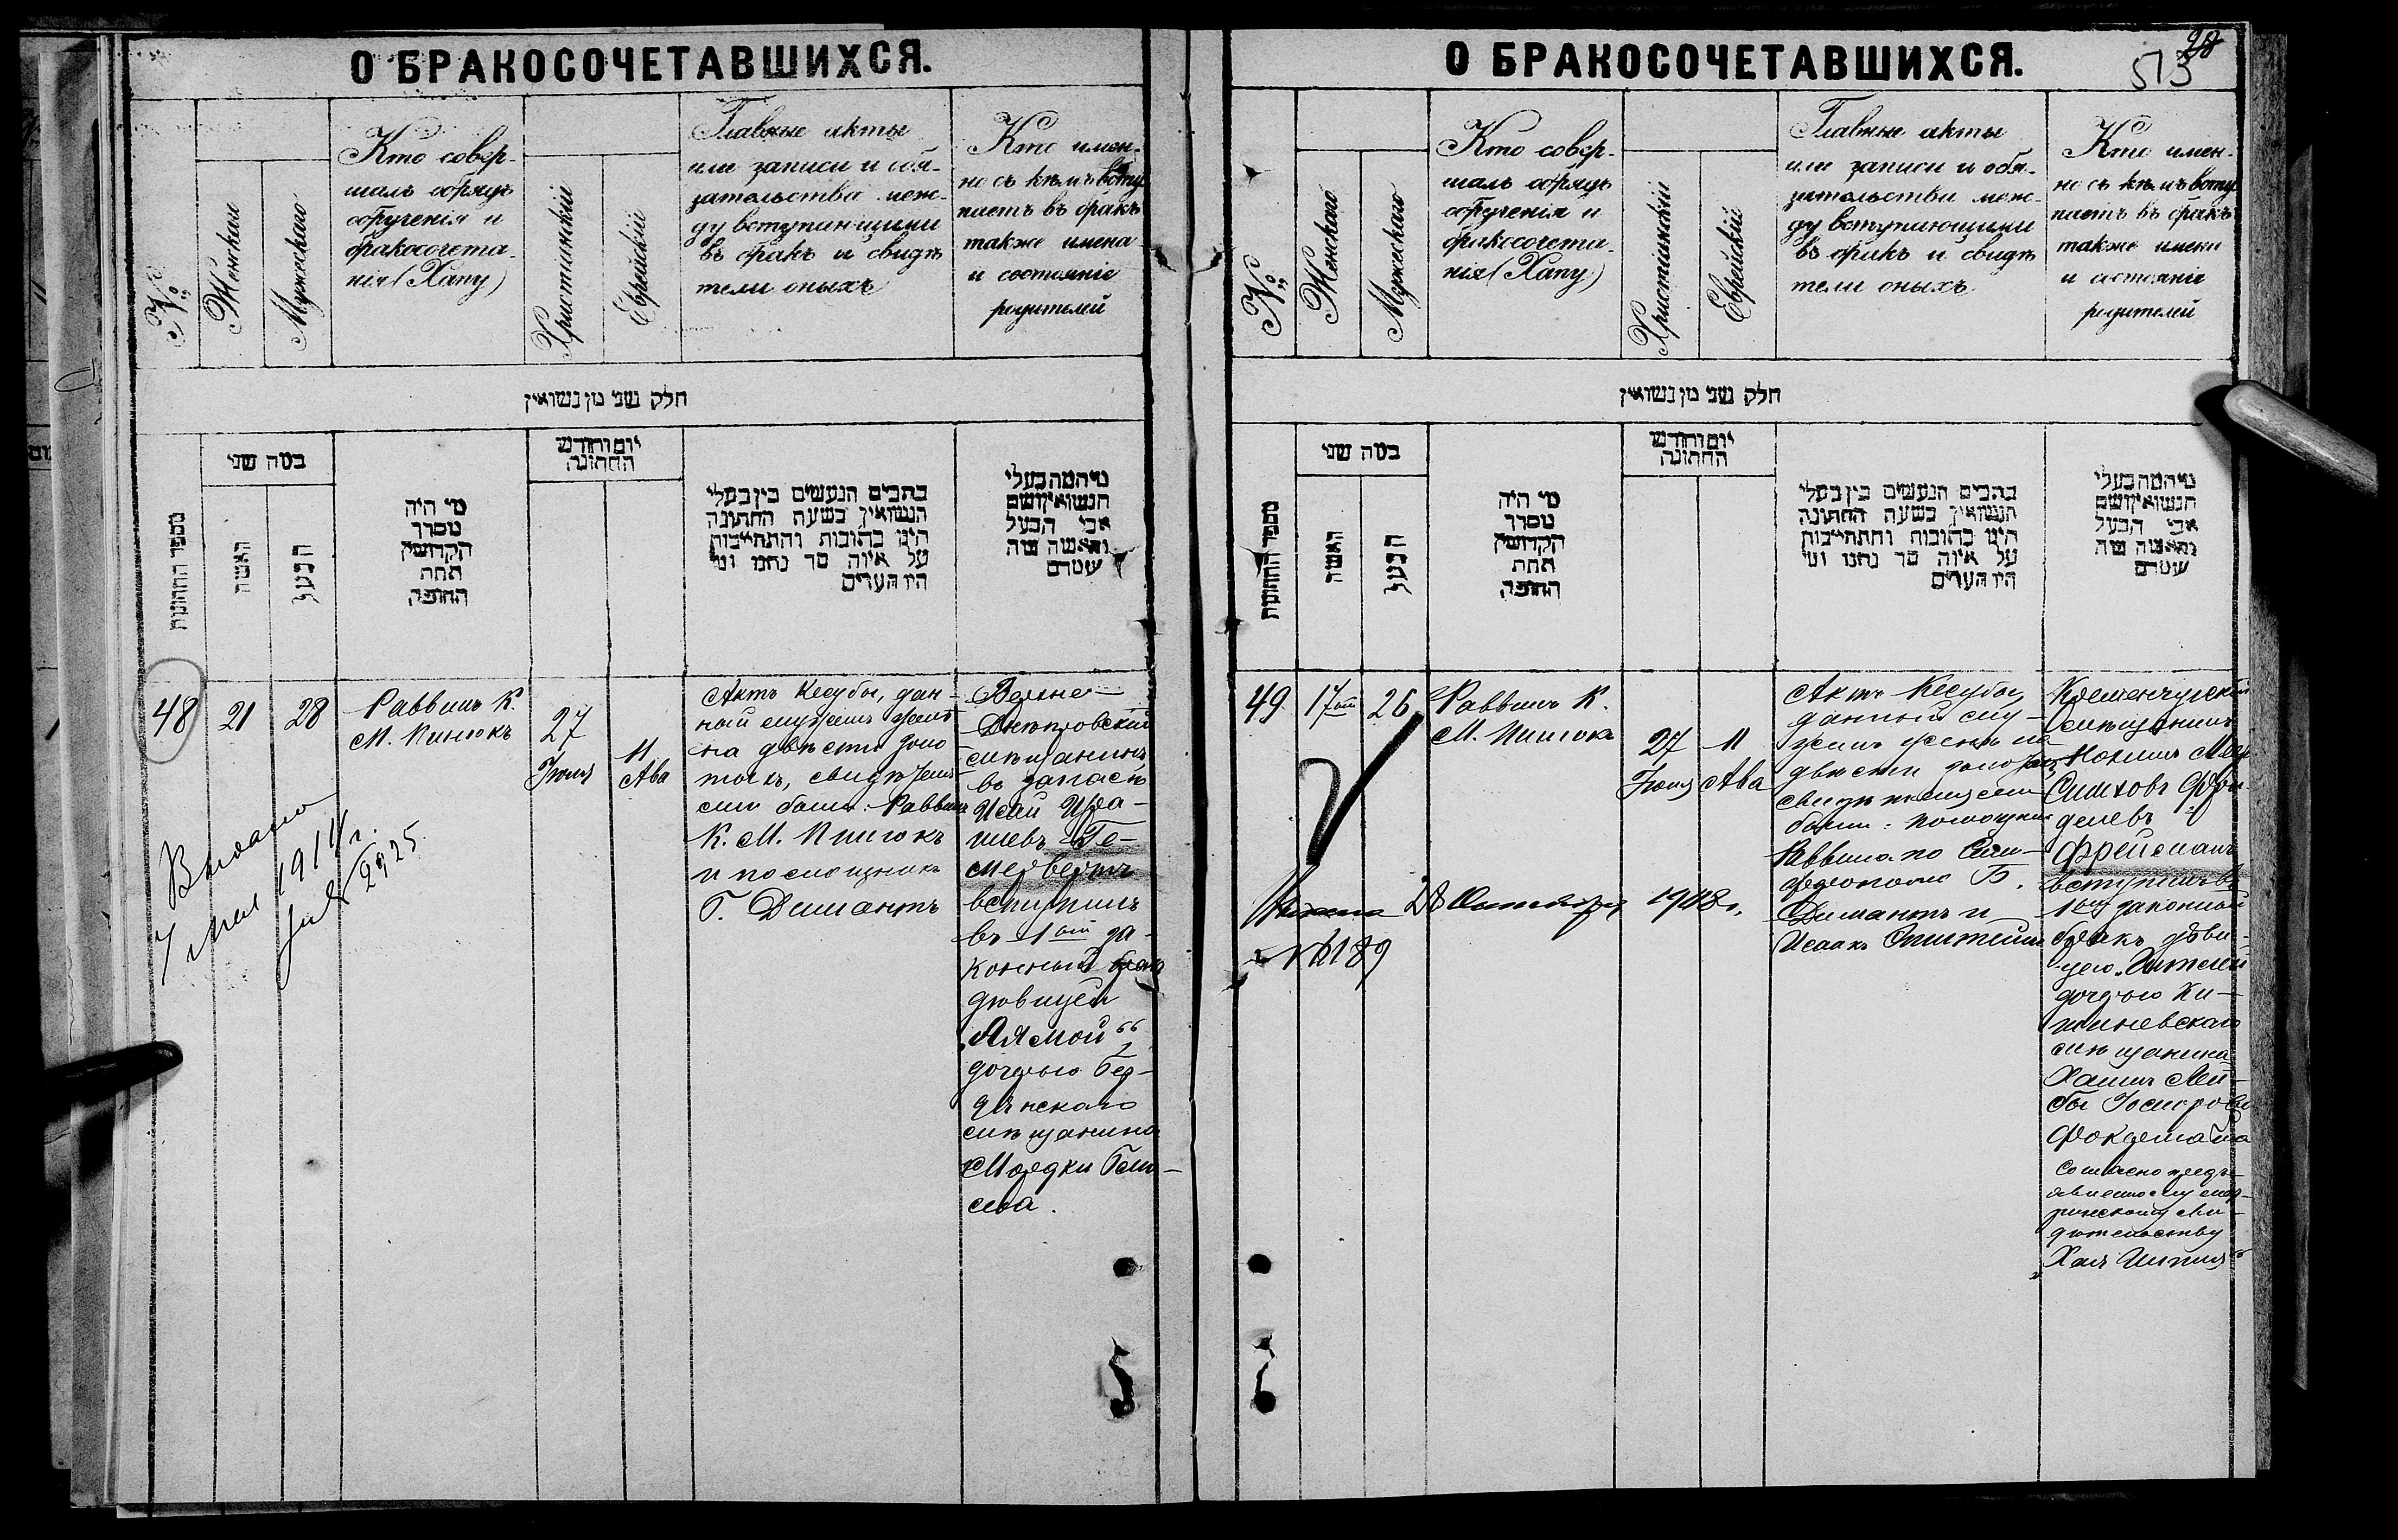 О БРАКОСОЧЕТАВШИХСЯ.
№
Женскаго
Мужескаго
Кто совер-
шалъ обрядъ
обрученія и
бракосочета-
нія (Хапу)
Христіянскій
Еврейскій
Главные акты
или записи и обя-
зательства меж-
ду вступающими
въ бракъ и свидѣ
тели оныхъ
Кто имен-
но съ кѣмъ всту
паетъ въ бракъ
также имена
и состояніе
родителей
חלק שני מן נשואין
מספר החתונות
כמה שני
האשה
הבעל
מי היה
מסדר
הקדושין
תחת
החופה
יום וחודש
החתונה
כתבים הנעשים בין בעלי
הנשואין בשעת החתונה
היינו כתובות והתחייבות
על איזה סך נתנו ומי
היו העדים
מי המה בעלי
הנשואין ושם
אבי הבעל
והאשה ומה
48
21
28
Раввинъ К.
М. Пинюкъ
27
Іюля
11
Ава
Актъ Кесубы, дан-
ный мужемъ женѣ
на двѣсти золо
тыхъ, свидѣтеля-
ми были: Раввинъ
К. М. Пинюкъ
и помощникъ
Б. Димантъ
Верхне-
Днѣпровскій
мѣщанинъ
въ запасѣ
Исай Изра-
илевъ Ге-
мервертъ
вступилъ
въ 1ый за-
конный бракъ
дѣвицей
„Лямой“,
дочерью Бер-
дянскаго
мѣщанина
Мордки
Выдано
7 Мая 1914 г.
О БРАКОСОЧЕТАВШИХСЯ.
28
513
№
Женскаго
Мужескаго
Кто совер-
шалъ обрядъ
обрученія и
бракосочета-
нія (Хапу)
Христіянскій
Еврейскій
Главные акты
или записи и обя-
зательства меж-
ду вступающими
въ бракъ и свидѣ
тели оныхъ
Кто имен-
но съ кѣмъ всту
паетъ въ бракъ
также имена
и состояніе
родителей
חלק שני מן נשואין
מספר החתונות
כמה שני
האשה
הבעל
מי היה
מסדר
הקדושין
תחת
החופה
יום וחודש
החתונה
כתבים הנעשים בין בעלי
הנשואין בשעת החתונה
היינו כתובות והתחייבות
על איזה סך נתנו ומי
היו העדים
מי המה בעלי
הנשואין ושם
אבי הבעל
והאשה ומה
49
17ый
26
Раввинъ К.
М. Пинюкъ
27
Іюля
11
Ава
Актъ Кесубы,
данный му-
жемъ женѣ на
двѣсти золотыхъ,
свидѣтелями
были: помощникъ
Раввина по Сим-
ферополю Б.
Димантъ и
Исаакъ
Кременчугскій
мѣщанинъ
Симховъ
Фрейманъ
вступилъ въ
1ый законный
бракъ дѣви-
цею
дочерью Ки-
шиневскаго
мѣщанина
Хаима Лей-
бы
Согласно предъ-
явленному мет-
рическому сви-
дѣтельству
Выдана 28 Октября 1908 г.
№ 189
5
6